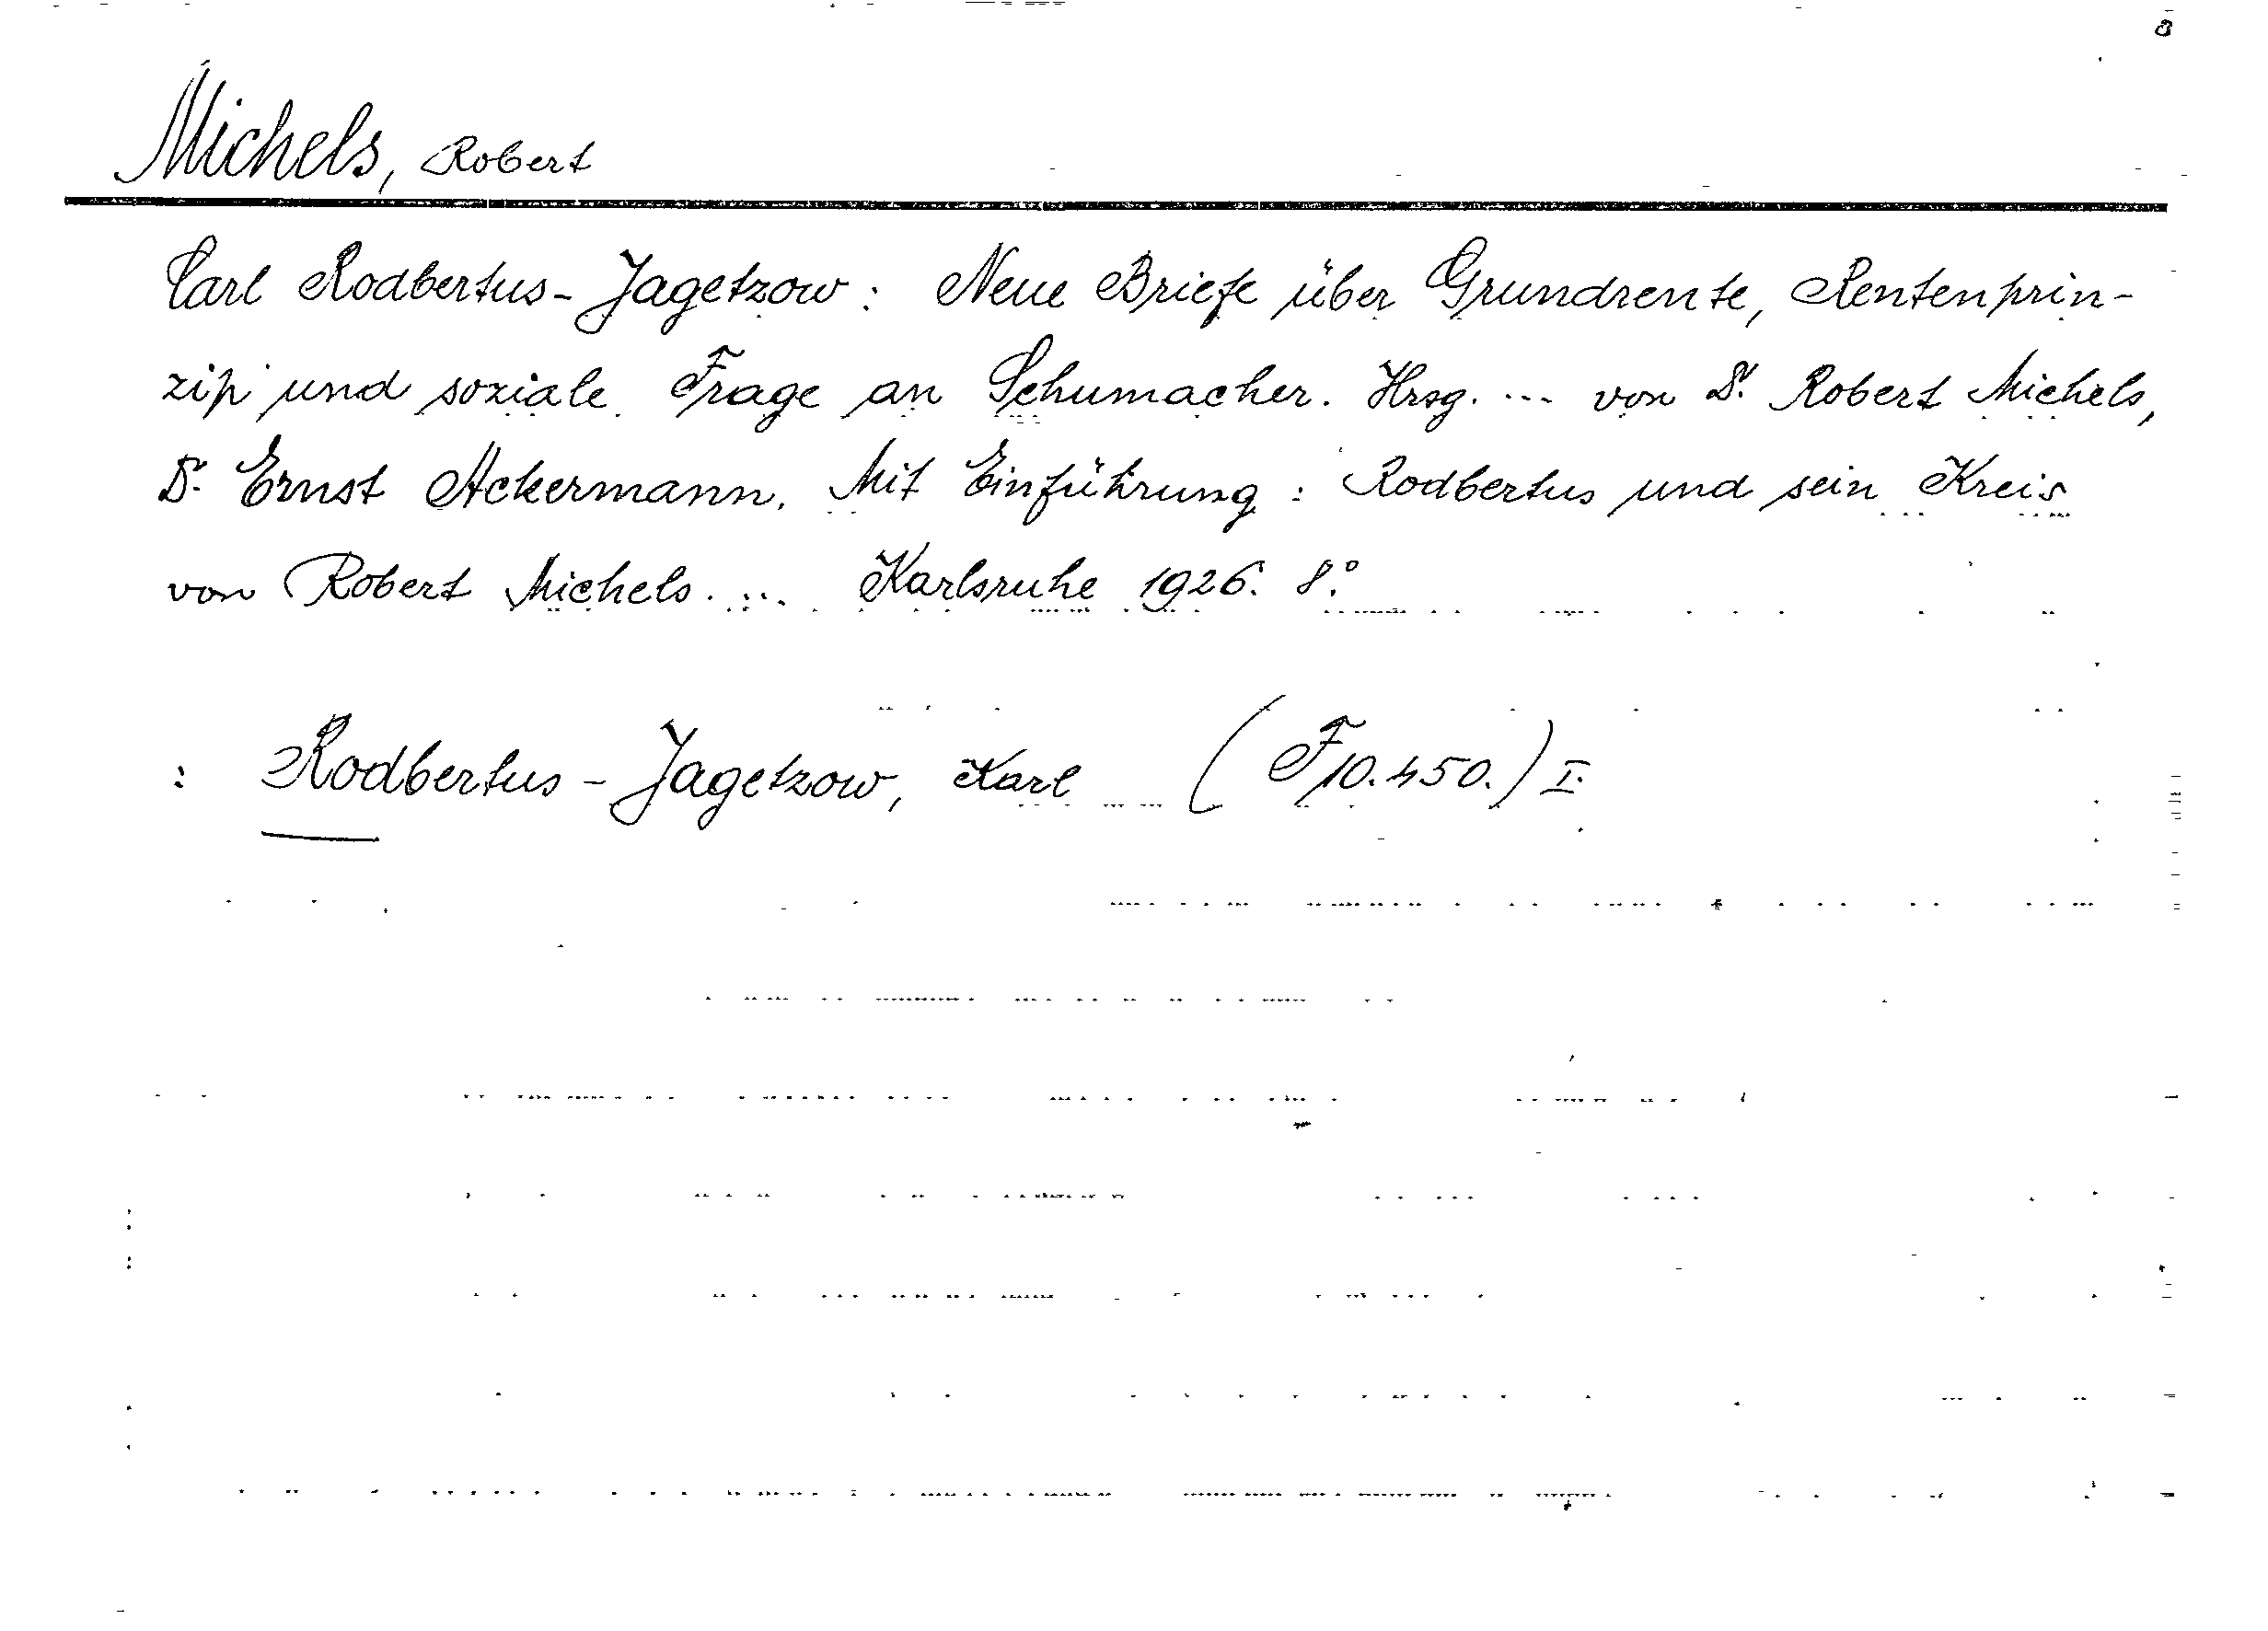 Michels, Robert
Carl Rodbertus-Jagetzow: Neue Briefe über Grundrente, Rentenprin-
zip und soziale Frage an Schumacher. Hrsg. ... von Dr. Robert Michels,
Dr. Ernst Ackermann. Mit Einführung: Rodbertus und sein Kreis
von Robert Michels. ... Karlsruhe 1926. 8°.
: Rodbertus-Jagetzow, Karl (F 10.450.) I.